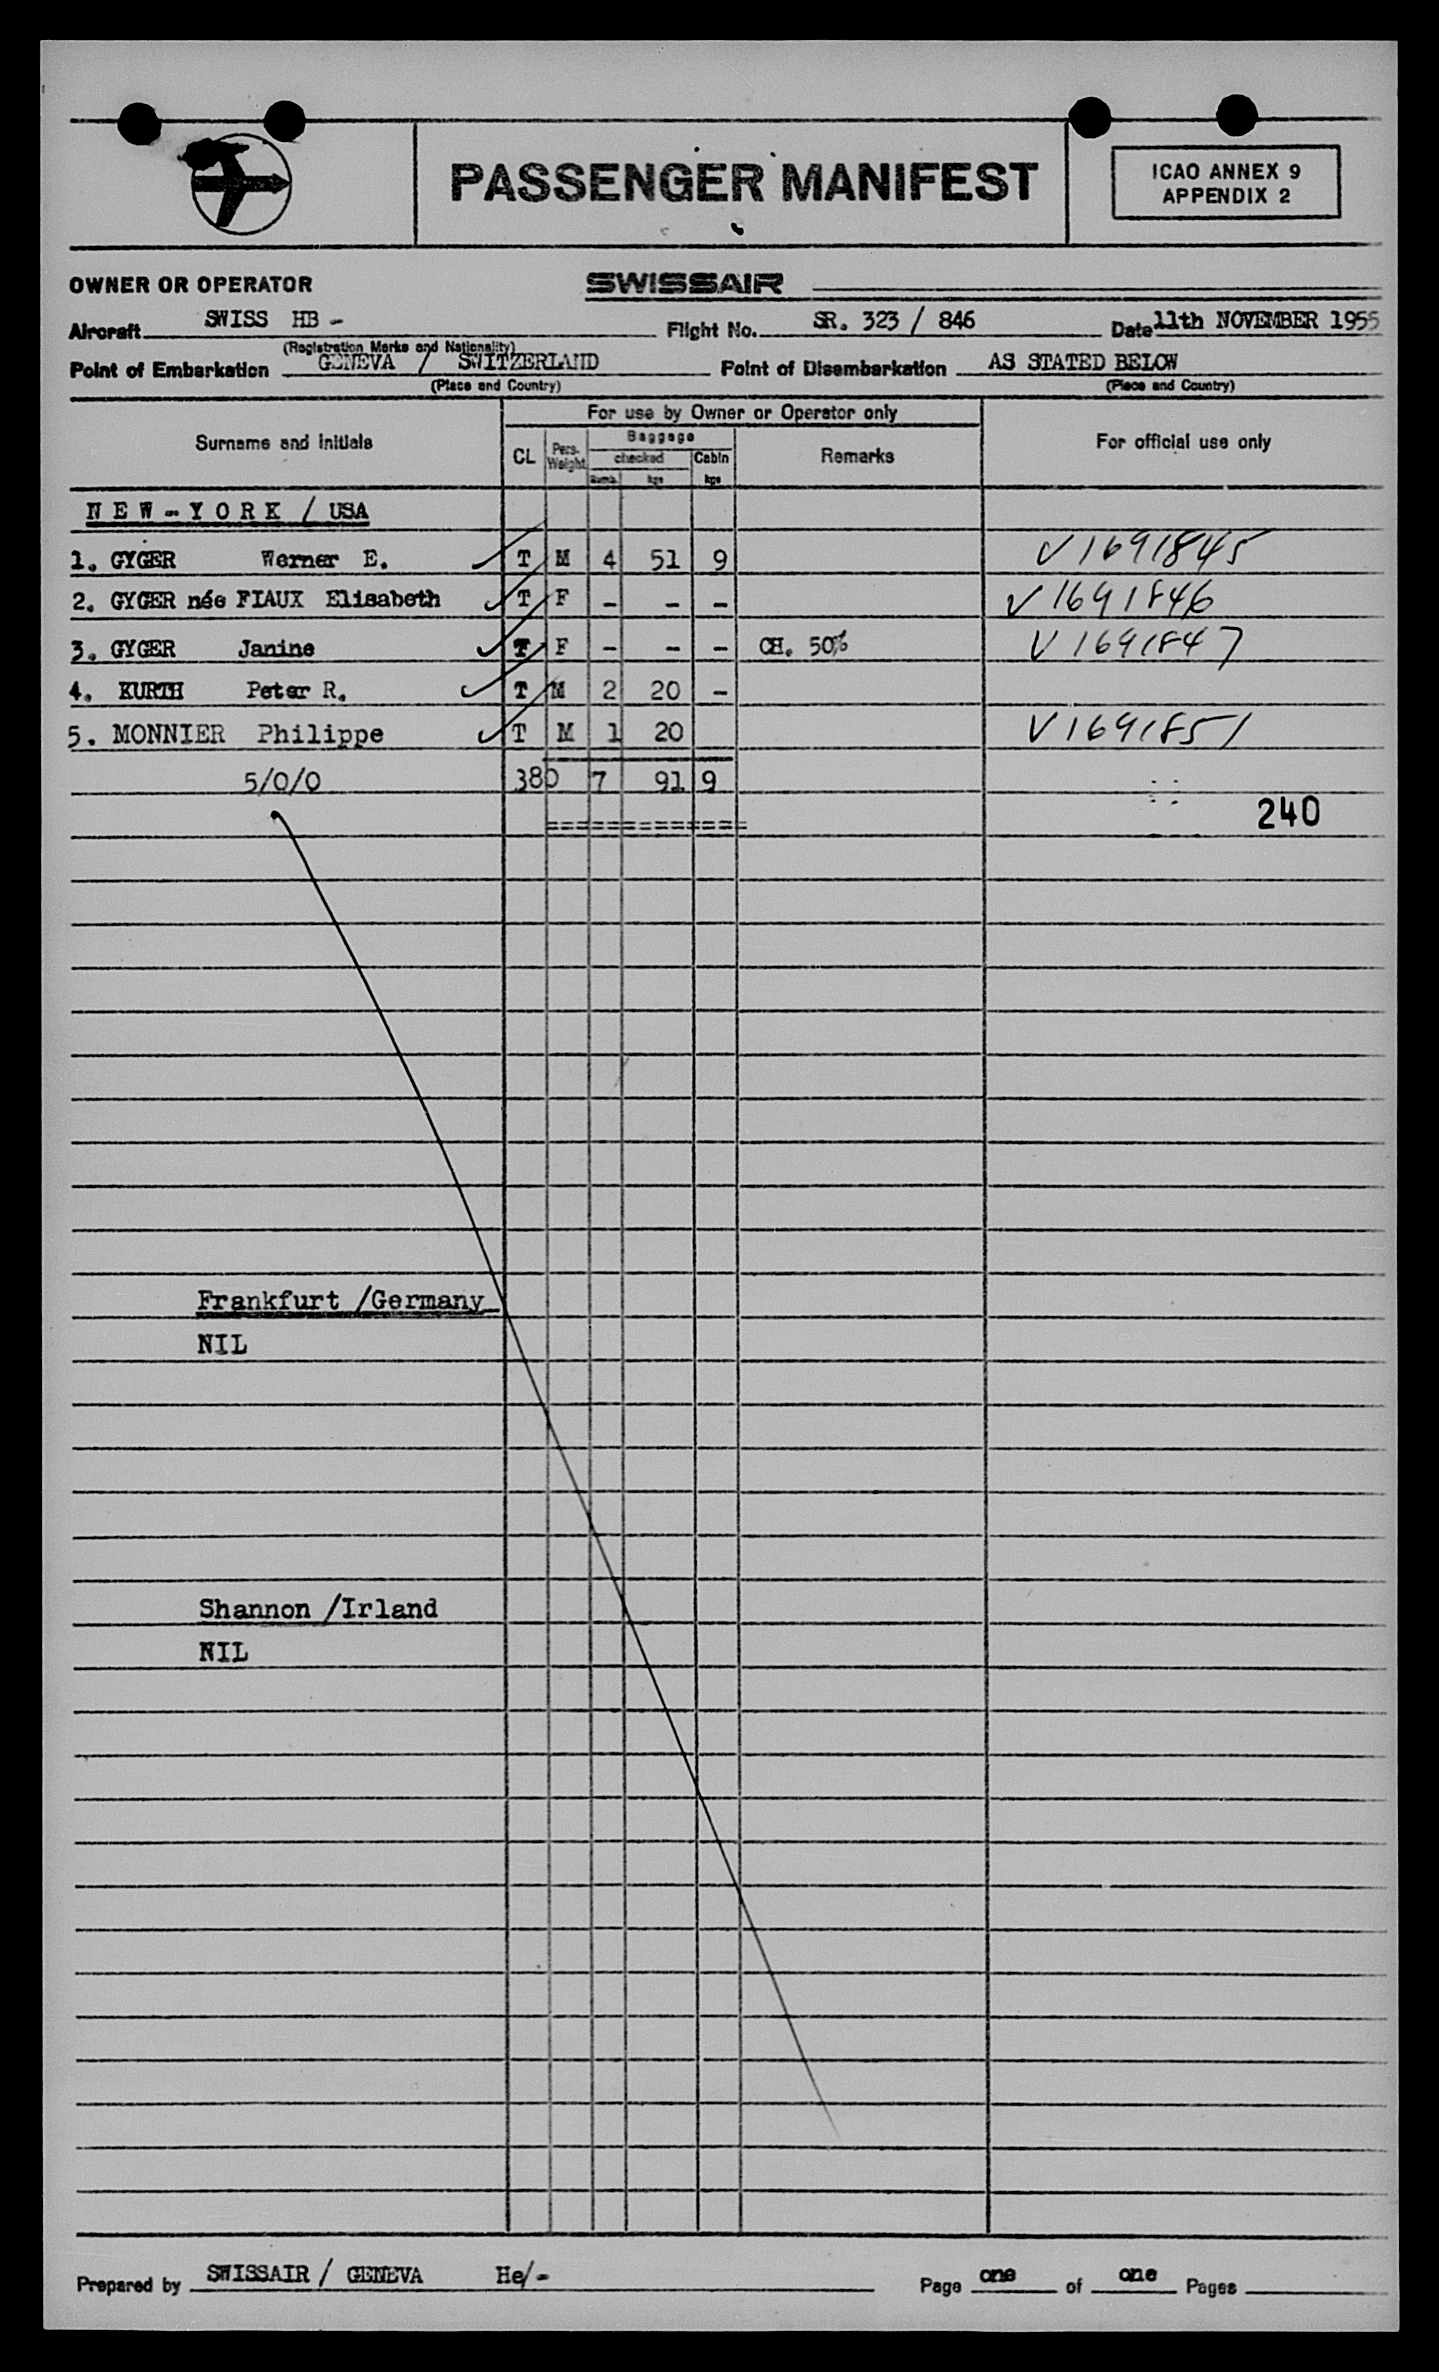 PASSENGER MANIFEST
ICAO ANNEX 9
APPENDIX 2
OWNER OR OPERATOR SWISSAIR
Aircraft SWISS HB - Flight No. SR. 323 / 846 Date 11th NOVEMBER 1955
(Registration Marks and Nationality)
Point of Embarkation GENEVA / SWITZERLAND Point of Disembarkation AS STATED BELOW
(Place and Country) (Place and Country)
Surname and initials For use by Owner or Operator only For official use only
CL Pers. Weight Baggage Remarks
checked Cabin
Numb. kgs kgs
NEW-YORK / USA
1. GYGER Werner E. T M 4 51 9 V1691845
2. GYGER née FIAUX Elisabeth T F - - - V1691846
3. GYGER Janine T F - - - CH. 50% V1691847
4. KURTH Peter R. T M 2 20 -
5. MONNIER Philippe T M 1 20 V1691851
5/0/0 380 7 91 9
240
================
Frankfurt /Germany
NIL
Shannon /Irland
NIL
Prepared by SWISSAIR / GENEVA He/- Page one of one Pages